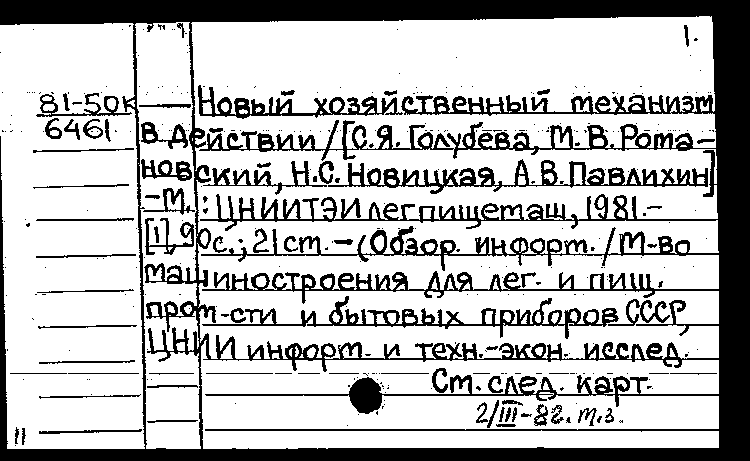 1.
81-50к — Новый хозяйственный механизм
6461 в действии / [С.Я. Голубева, М.В. Рома-
новский, Н.С. Новицкая, А.В. Павлихин]
-М. : ЦНИИТЭИлегпищемаш, 1981.-
[1], 90с.; 21см. - (Обзор. информ. / М-во
машиностроения для лег. и пищ.
пром-сти и бытовых приборов СССР,
ЦНИИ информ. и техн.-экон. исслед.
См. след. карт.
2/III-82. т.з.
11